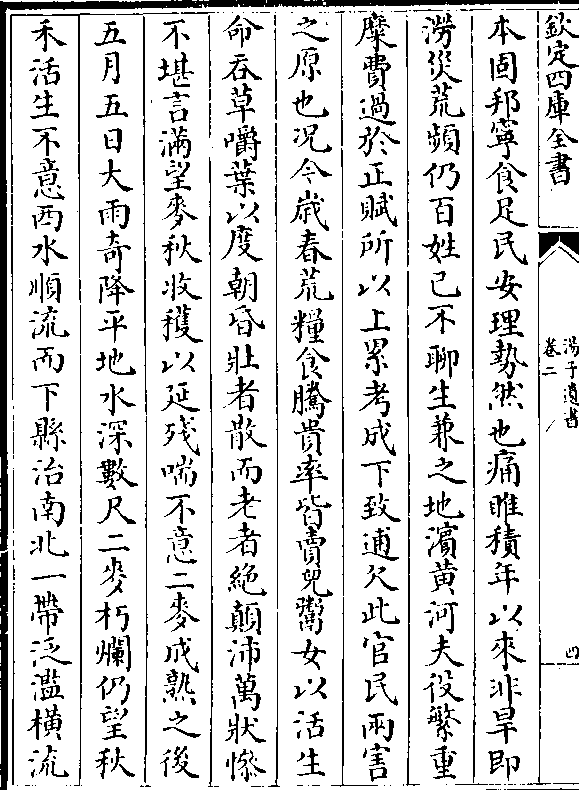 欽定四庫全書
湯子遺書
卷二
四
本固邦寧食足民安理勢然也痛睢積年以來非旱即
澇災荒頻仍百姓已不聊生兼之地濵黄河夫役繁重
糜費過於正賦所以上累考成下致逋欠此官民兩害
之原也况今嵗春荒糧食騰貴率皆賣兒鬻女以活生
命吞草嚼葉以度朝昏壯者散而老者絶顛沛萬狀慘
不堪言滿望麥秋收穫以延殘喘不意二麥成熟之後
五月五日大雨奇降平地水深數尺二麥朽爛仍望秋
禾活生不意西水順流而下縣治南北一帶泛濫橫流